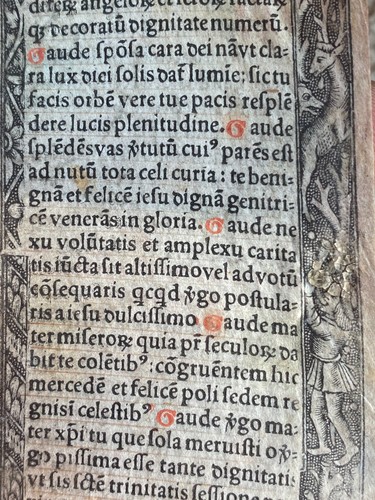 angeloꝝ et
qꝫ decoratū dignitate numerū.
Gaude spōsa cara dei nāvt cla=
ra lux diei solis dat̄ lumīe: sic tu
facis orbē vere tue pacis resplē
dere lucis plenitudine. Gaude
splēdēs vas ꝟtutū cuiꝰ parēs est
ad nutū tota celi curia: te beni=
gnā et felicē iesu dignā genitri=
cē venerās in gloria. Gaude ne
xu volūtatis et amplexu carita
tis iūcta sit altissimo vel ad votū
cōsequaris qcqd ꝟgo postula=
ris a iesu dulcissimo Gaude ma
ter miseroꝝ quia pr̄ seculoꝝ da
bit te colētibꝰ: cōgruentem hic
mercedē et felicē poli sedem re
gnis i celestibꝰ Gaude ꝟgo ma=
ter xp̄i tu que sola meruisti o ꝟ=
go pissima esse tante dignitatis
vt sis sct̄e trinitatis sessione